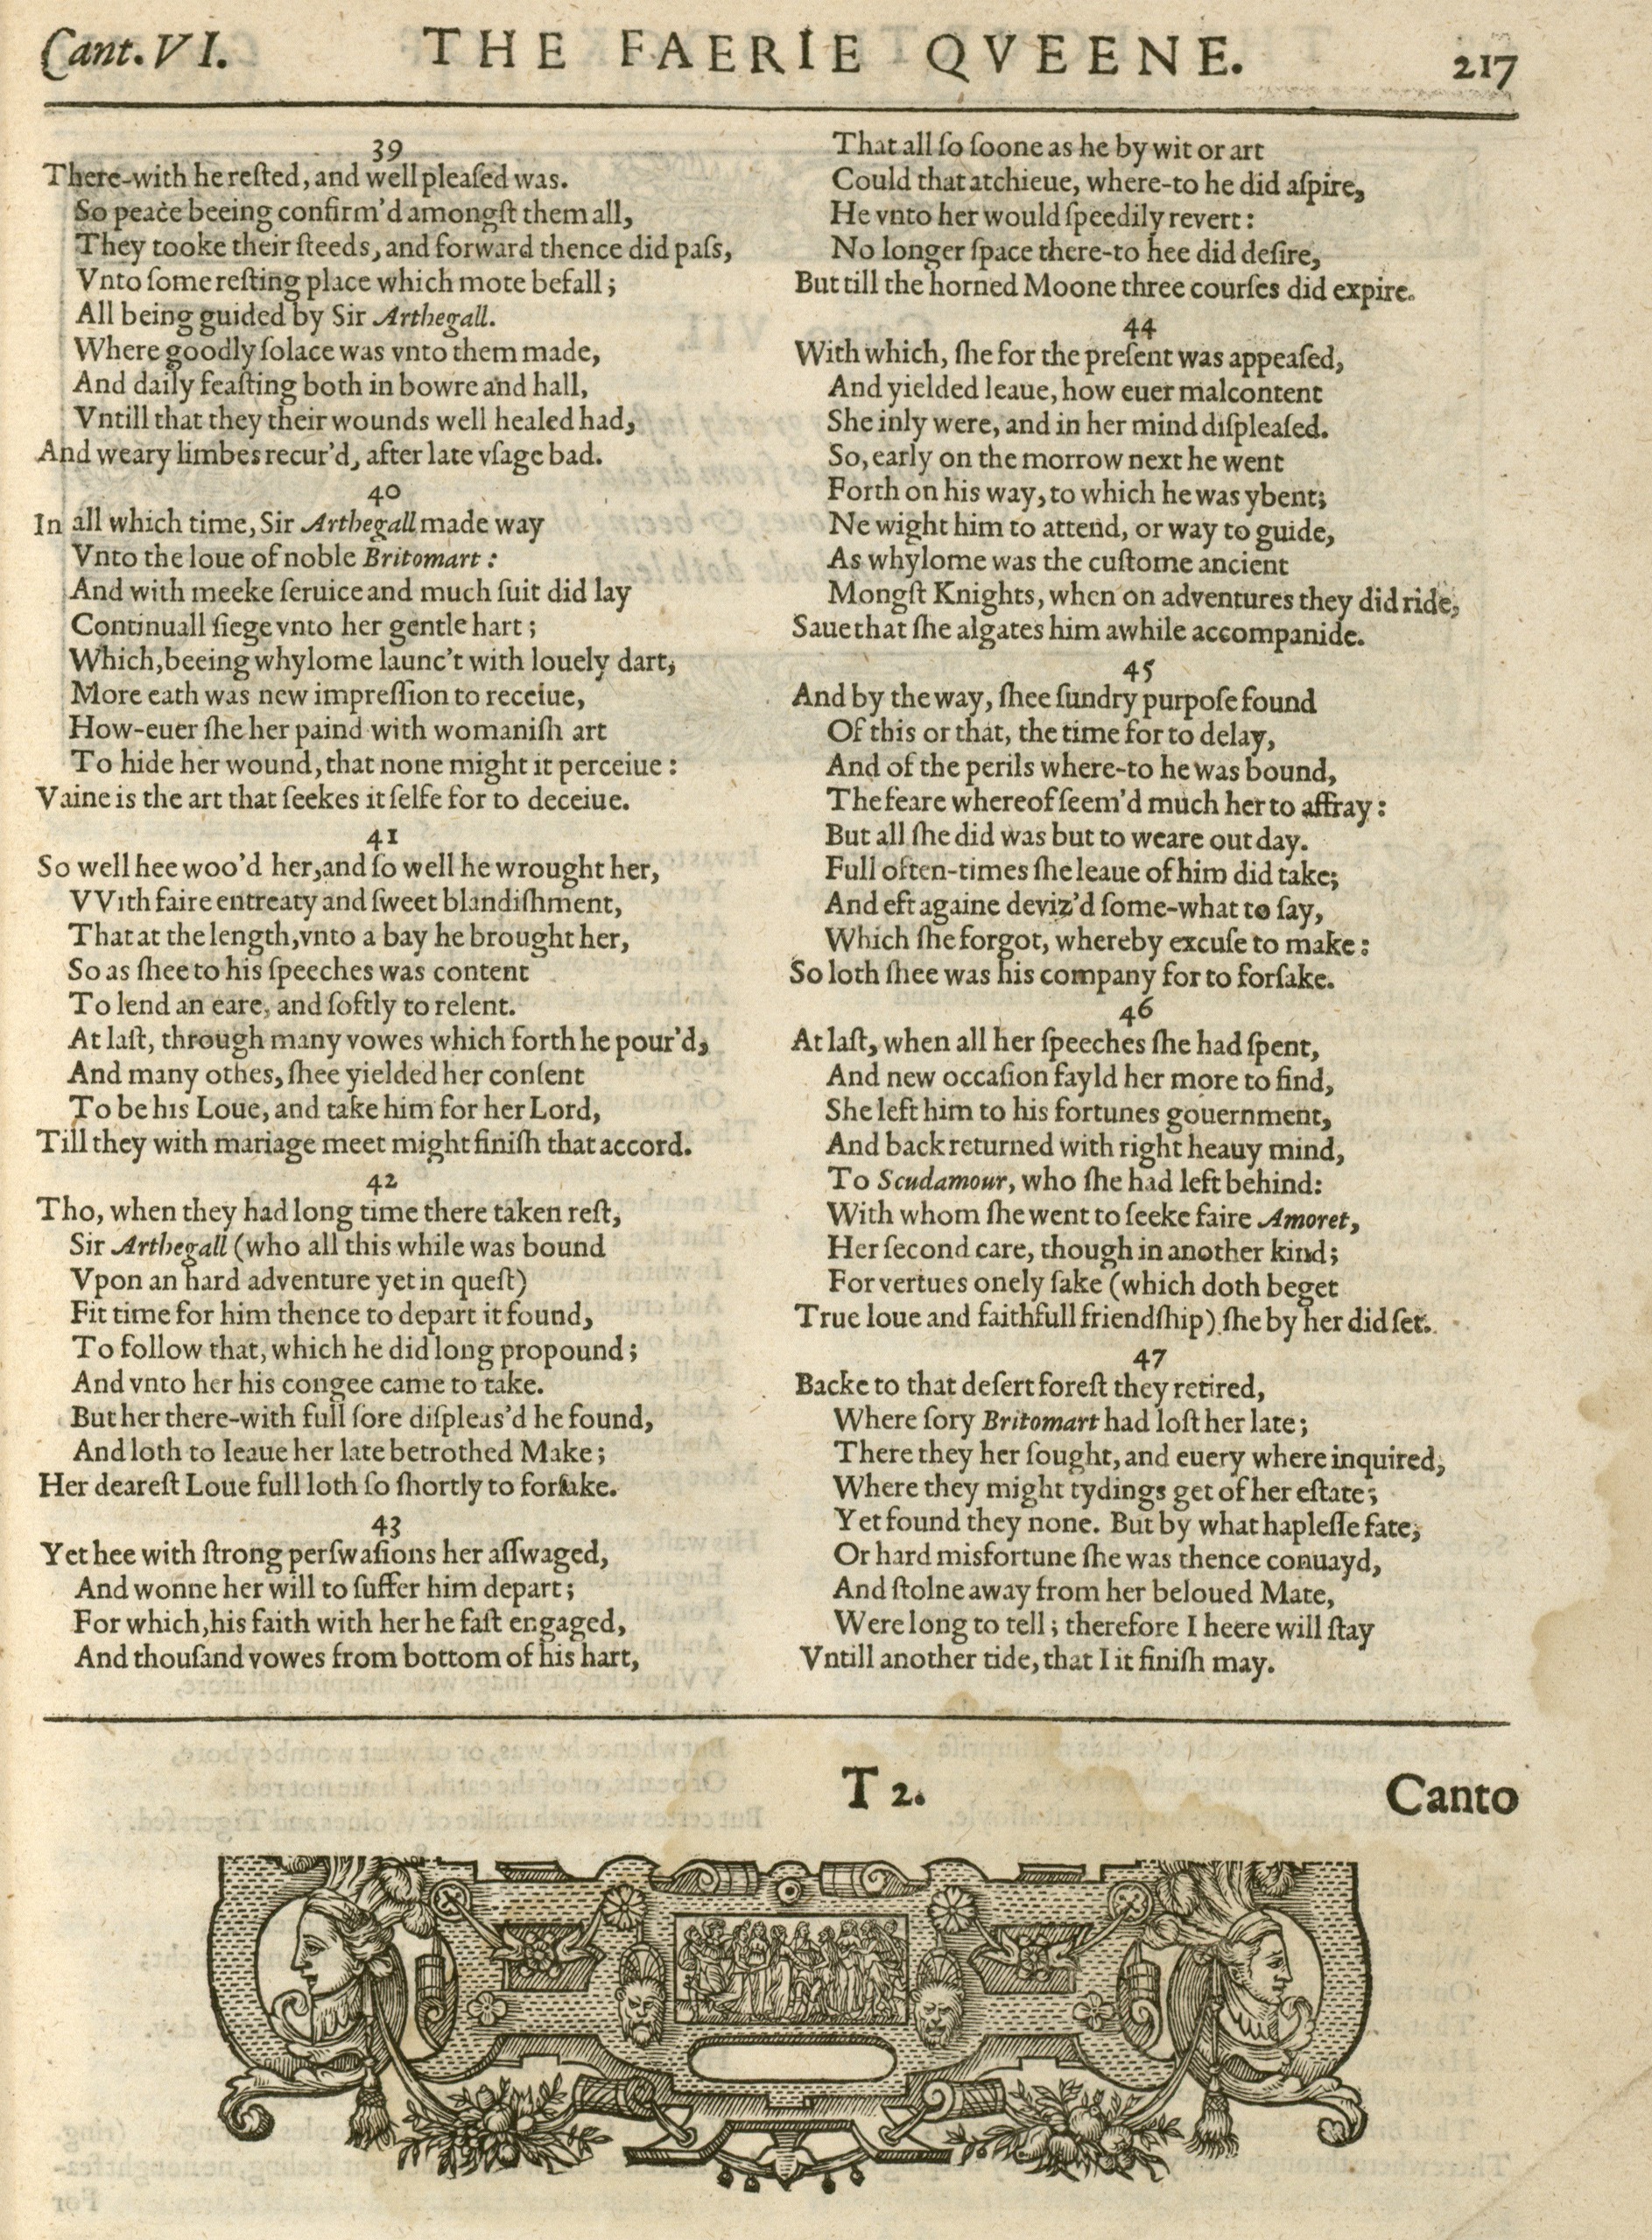 Cant. VI.
THE FAERIE QVEENE.
217
39
There-with he reſted, and well pleaſed was.
So peace beeing confirm'd amongſt them all,
They tooke their ſteeds, and forward thence did paſs,
Vnto ſome reſting place which mote befall;
All being guided by Sir Arthegall.
Where goodly ſolace was vnto them made,
And daily feaſting both in bowre and hall,
Vntill that they their wounds well healed had,
And weary limbes recur'd, after late vſage bad.
40
In all which time, Sir Arthegall made way
Vnto the loue of noble Britomart:
And with meeke ſeruice and much ſuit did lay
Continuall ſiege vnto her gentle hart;
Which, beeing whylome launc't with louely dart,
More eath was new impreſſion to receiue,
How-euer ſhe her paind with womaniſh art
To hide her wound, that none might it perceiue:
Vaine is the art that ſeekes it ſelfe for to deceiue.
41
So well hee woo'd her, and ſo well he wrought her,
VVith faire entreaty and ſweet blandiſhment,
That at the length, vnto a bay he brought her,
So as ſhee to his ſpeeches was content
To lend an eare, and ſoftly to relent.
At laſt, through many vowes which forth he pour'd,
And many othes, ſhee yielded her conſent
To be his Loue, and take him for her Lord,
Till they with mariage meet might finiſh that accord.
42
Tho, when they had long time there taken reſt,
Sir Arthegall (who all this while was bound
Vpon an hard adventure yet in queſt)
Fit time for him thence to depart it found,
To follow that, which he did long propound;
And vnto her his congee came to take.
But her there-with full ſore diſpleas'd he found,
And loth to leaue her late betrothed Make;
Her deareſt Loue full loth ſo ſhortly to forſake.
43
Yet hee with ſtrong perſwaſions her aſſwaged,
And wonne her will to ſuffer him depart;
For which, his faith with her he faſt engaged,
And thouſand vowes from bottom of his hart,
That all ſo ſoone as he by wit or art
Could that atchieue, where-to he did aſpire,
He vnto her would ſpeedily revert:
No longer ſpace there-to hee did deſire,
But till the horned Moone three courſes did expire.
44
With which, ſhe for the preſent was appeaſed,
And yielded leaue, how euer malcontent
She inly were, and in her mind diſpleaſed.
So, early on the morrow next he went
Forth on his way, to which he was ybent;
Ne wight him to attend, or way to guide,
As whylome was the cuſtome ancient
Mongſt Knights, when on adventures they did ride,
Saue that ſhe algates him awhile accompanide.
45
And by the way, ſhee ſundry purpoſe found
Of this or that, the time for to delay,
And of the perils where-to he was bound,
The feare whereof ſeem'd much her to affray:
But all ſhe did was but to weare out day.
Full often-times ſhe leaue of him did take;
And eft againe deviz'd ſome-what to ſay,
Which ſhe forgot, whereby excuſe to make:
So loth ſhee was his company for to forſake.
46
At laſt, when all her ſpeeches ſhe had ſpent,
And new occaſion fayld her more to find,
She left him to his fortunes gouernment,
And back returned with right heauy mind,
To Scudamour, who ſhe had left behind:
With whom ſhe went to ſeeke faire Amoret,
Her ſecond care, though in another kind;
For vertues onely ſake (which doth beget
True loue and faithfull friendſhip) ſhe by her did ſet.
47
Backe to that deſert foreſt they retired,
Where ſory Britomart had loſt her late;
There they her ſought, and euery where inquired,
Where they might tydings get of her eſtate;
Yet found they none. But by what hapleſſe fate,
Or hard misfortune ſhe was thence conuayd,
And ſtolne away from her beloued Mate,
Were long to tell; therefore I heere will ſtay
Vntill another tide, that I it finiſh may.
T 2.
Canto